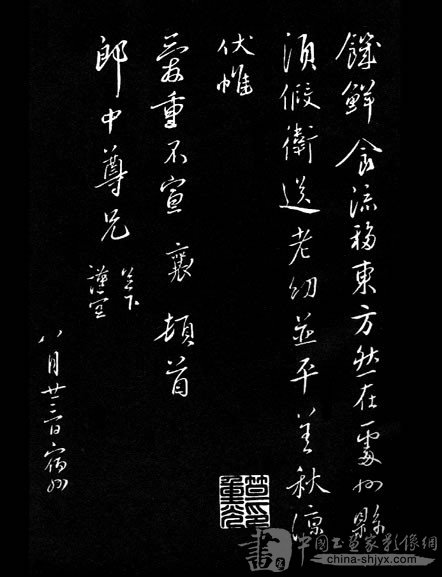 饑鮮食流移東方然在處州縣
須假衛送老幼並平善秋涼
伏惟
愛重不宣 襄頓首
郎中尊兄 足下
謹空
八月廿三日宿州
書
中國書畫家影像網
china-shjyx.com